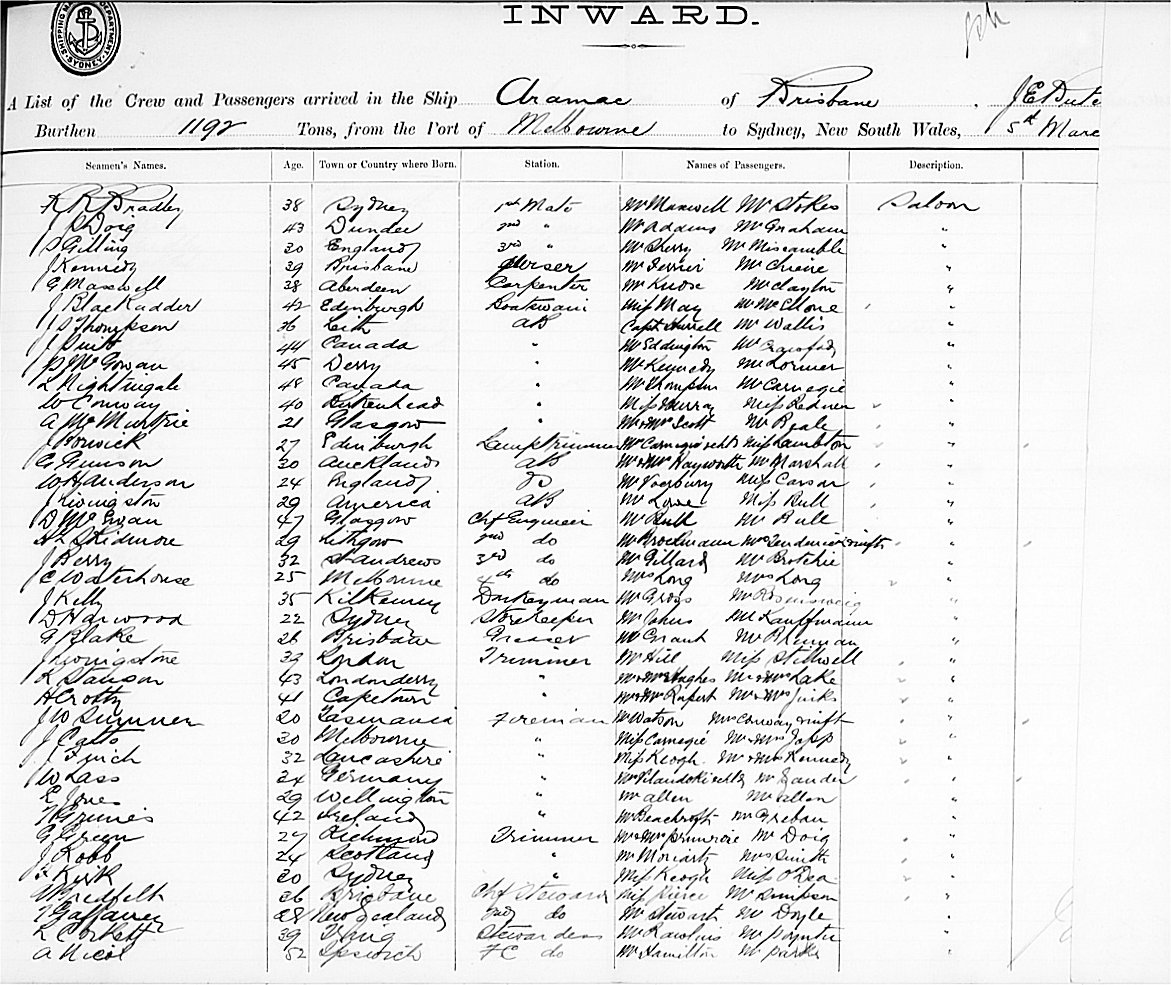 INWARD.
SHIPPING DEPARTMENT SYDNEY
A List of the Crew and Passengers arrived in the Ship Aramac of Brisbane, J E
Burthen 1192 Tons, from the Port of Melbourne to Sydney, New South Wales, 5th
Seamen's Names. Age. Town or Country where Born. Station. Names of Passengers. Description.
Bradley 38 Sydney 1st Mate Mr Maxwell Mr Stokes Saloon
J Doig 43 Dundee 2nd " Mr Adams Mr Graham "
Gilling 30 England 3rd " Mr Sherry Mr Miscamble "
J Kennedy 39 Brisbane Mr Ferrier "
G Maxwell 38 Aberdeen Carpenter Mr Knox Mr Clayton "
J Blackadder 42 Edinburgh Boatswain Miss May "
J S Thompson 36 Leith AB Capt Mr Wallis "
J 44 Canada " Mr Eddington Mr Crawford "
McGowan 45 Derry " Mr Kennedy Mr Lorimer "
L Nightingale 48 Canada " Mr Thompson Mr Carnegie "
W Conway 40 Birkenhead " Miss Murray Miss "
A McMurtrie 21 Glasgow " Mr & Mrs Scott Mr "
J 27 Edinburgh Lamptrimmer Mr Carnegie Miss Lambton "
G Gunson 30 Auckland AB Mr & Mrs Hayworth Mr Marshall "
W Anderson 24 England do Mr Miss Carson "
J Livingston 29 America AB Mr Love Miss Bull "
D McEwan 47 Glasgow Chf Engineer Mr Bull Mr Bull "
Skidmore 29 Lithgow 2nd do Mr Brockmann "
J Berry 32 St Andrews 3rd do Mr Gillard Mr Brotchie "
C Waterhouse 25 Melbourne 4th do Mrs Long Mrs Long "
J Kelly 35 Kilkenny Donkeyman Mr Gross Mr "
D Harwood 22 Sydney Storekeeper Mr Johns Mr Kauffmann "
G Blake 26 Brisbane Greaser Mr Grant Mr "
J Livingstone 39 London Trimmer Mr Hill Miss Stillwell "
43 Londonderry " Mr & Mrs Hughes Mr & Mrs Lake "
H Crotty 41 Capetown " Mr & Mrs Rupert Mr & Mrs Jenks "
J W 20 Tasmania Fireman Mr Watson Mr Conway "
J 30 Melbourne " Miss Carnegie Mr & Mrs Japp "
J Finch 32 Lancashire " Miss Keogh Mr & Mrs Kennedy "
W Lass 34 Germany " Mr "
E Jones 29 Wellington " Mr Allen Mr Allen "
42 Ireland " Mr Beachcroft Mr "
G Green 27 Richmond Trimmer Mr & Mrs Primrose Mr Doig "
J Robb 24 Scotland " Mr Moriarty Mrs Smith "
Kirk 30 Sydney " Miss Keogh Miss O'Dea "
36 Brisbane Chf Steward Miss Pierce Mr Simpson "
28 New Zealand 2nd do Mr Stewart Mr Doyle "
Corbett 39 Stewardess Mr Rawlins Mr Poynter "
A Nicol 52 Ipswich F C do Mr Hamilton Mr Parkes "